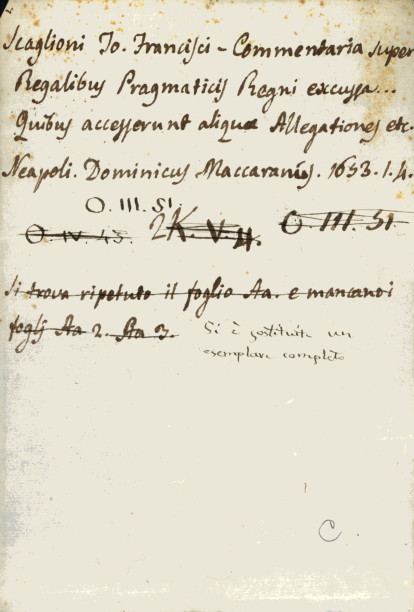 Scaglioni Jo. Francisci - Commentaria super
Regalibus Pragmaticis Regni excussa...
Quibus accesserunt aliquæ Allegationes etc.
Neapoli. Dominicus Maccaranus. 1653. 1. 4.
O. III. 51.
O. IV. 43. 2K. V. 4. O. III. 51.
Si trova ripetuto il foglio Aa. e mancano i
foglj Aa 2. Aa 3.
Si è sostituito un
esemplare completo
C.